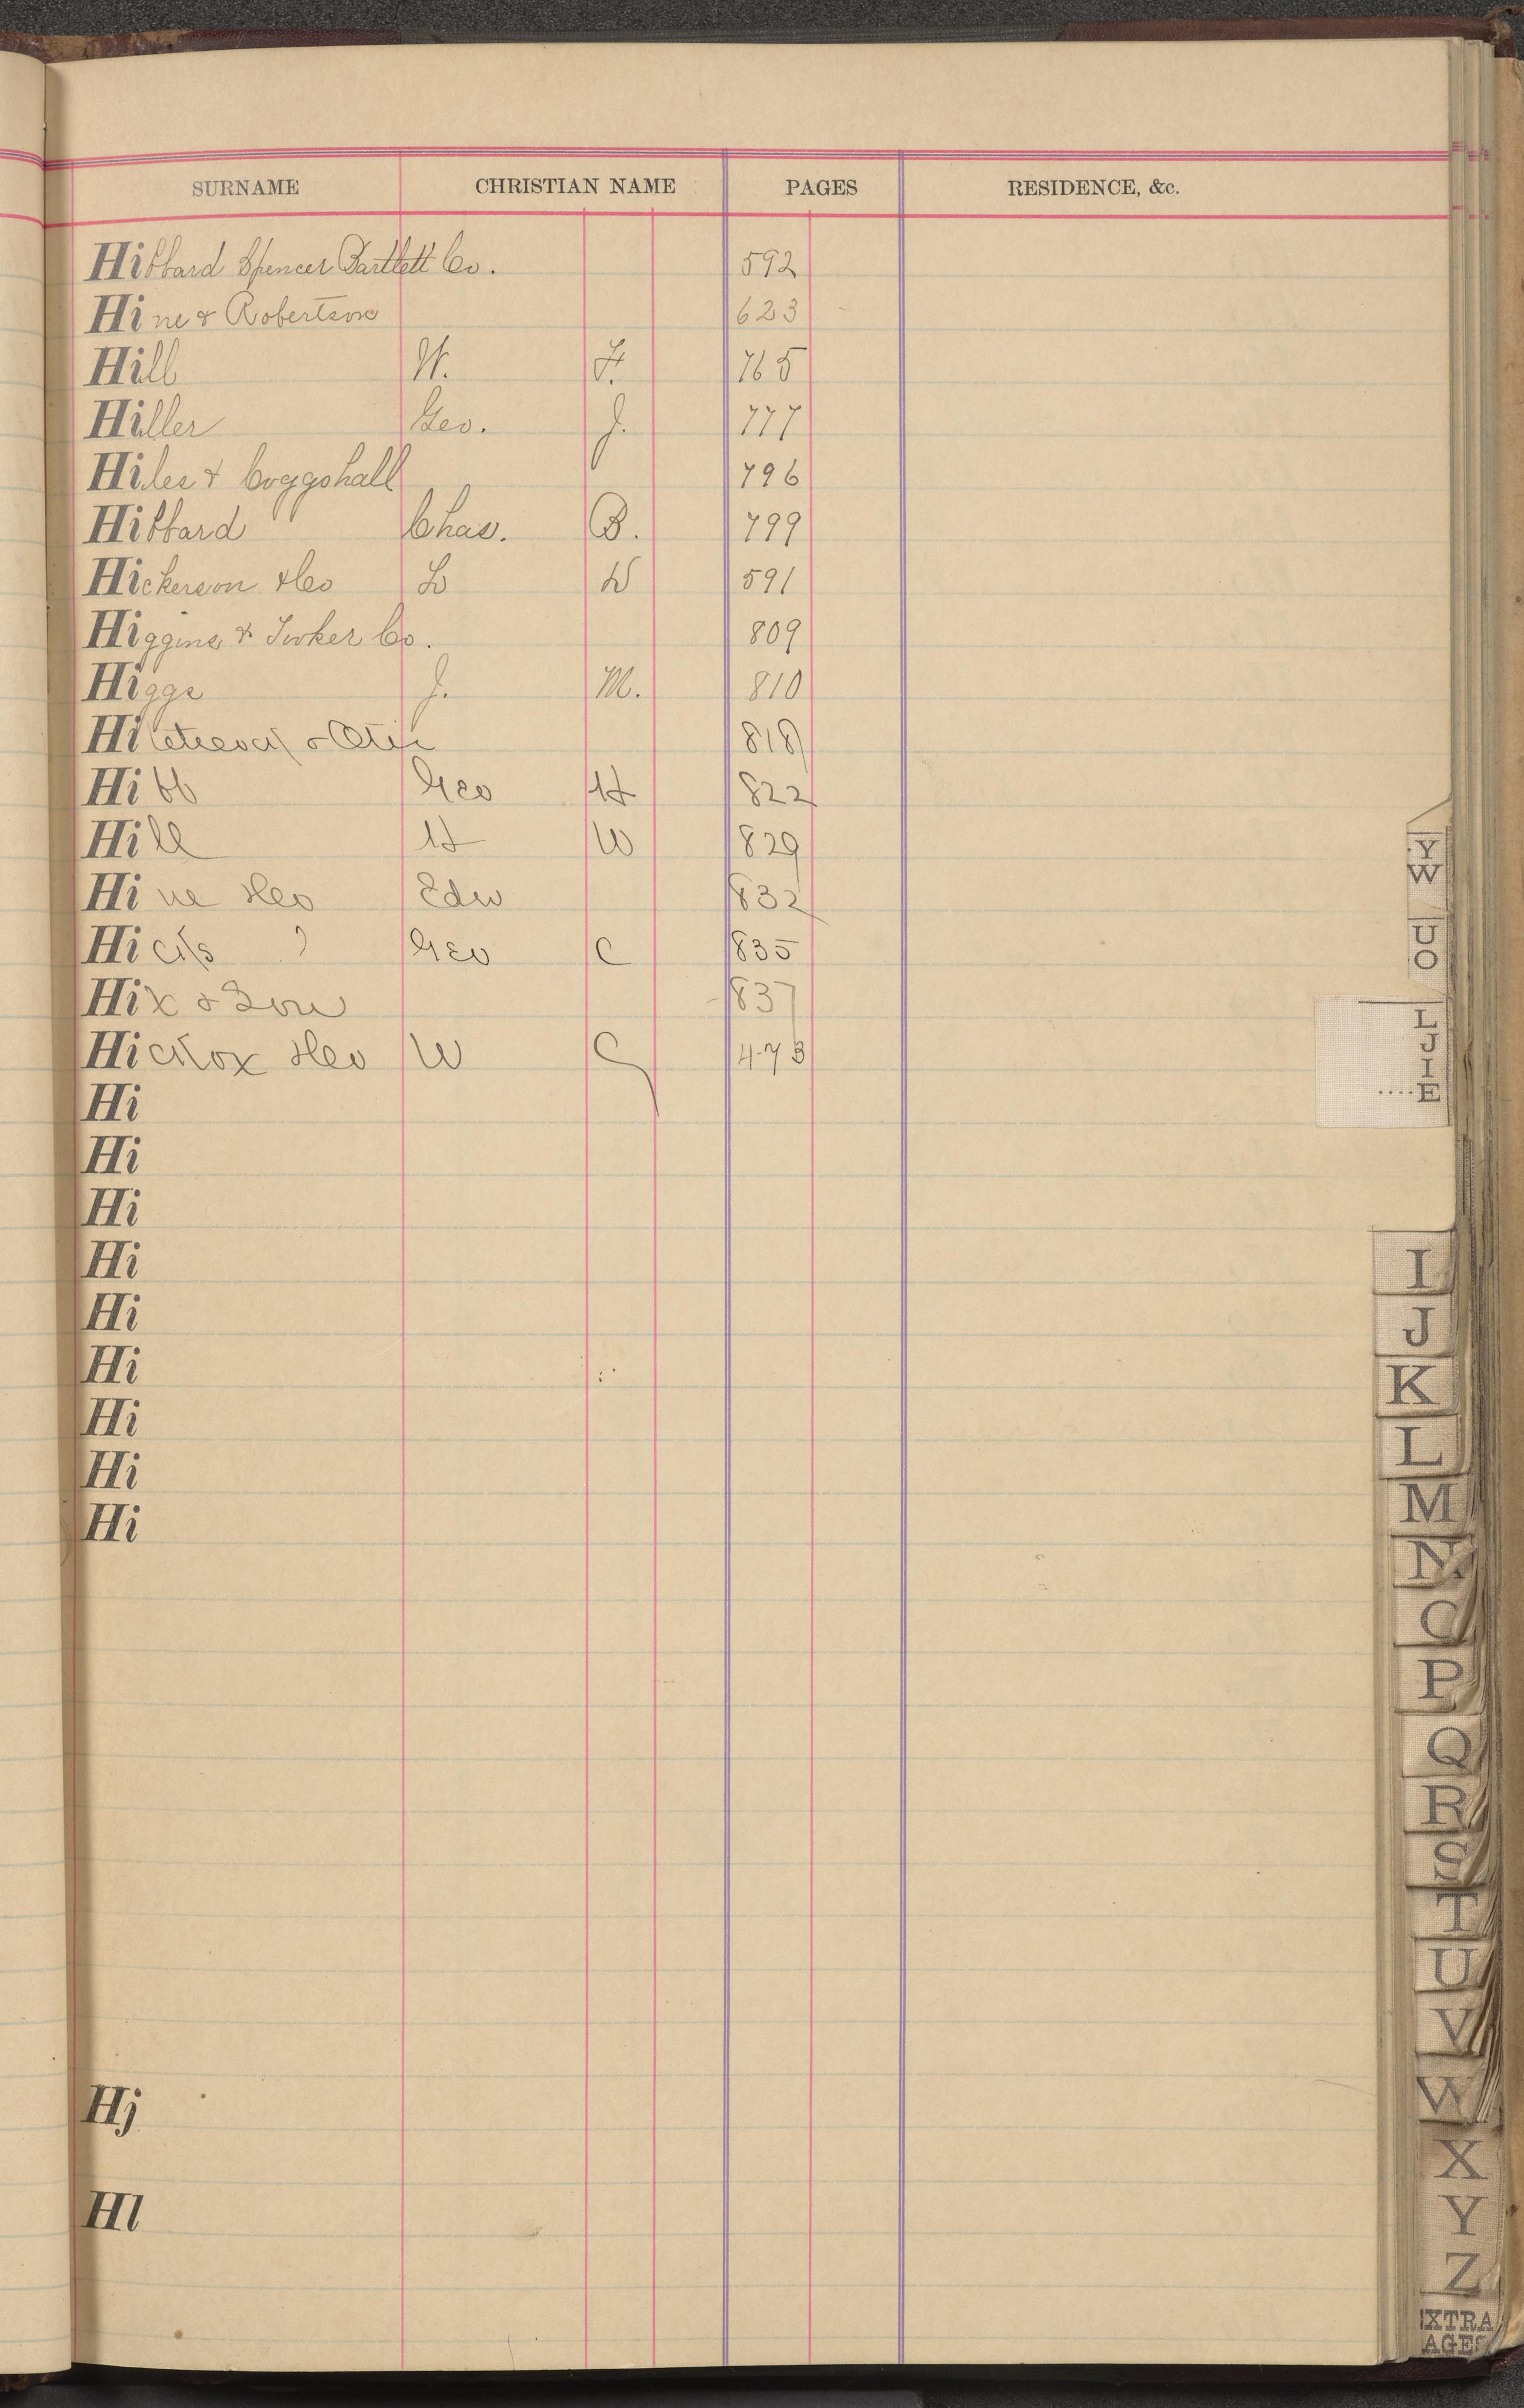 SURNAME CHRISTIAN NAME PAGES RESIDENCE, &c.
Hibbard Spencer Bartlett Co. 592
Hine & Robertson 623
Hill W. F. 765
Hiller Geo. J. 777
Hiles & Coggshall 796
Hibbard Chas. B. 799
Hickerson &Co L W 591
Higgins & Tooker Co. 809
Higgs J. M. 810
Hi & Otis 818
Hibb Geo H 822
Hill H W 829
Hine &Co Edw 832
Hicks Geo C 835
Hix & Son 837
Hickox &Co W C 473
Hi
Hi
Hi
Hi
Hi
Hi
Hi
Hi
Hi
Hj
Hl
Y
W
U
O
L
J
I
E
I
J
K
L
M
N
O
P
Q
R
S
T
U
V
W
X
Y
Z
EXTRA
AGES